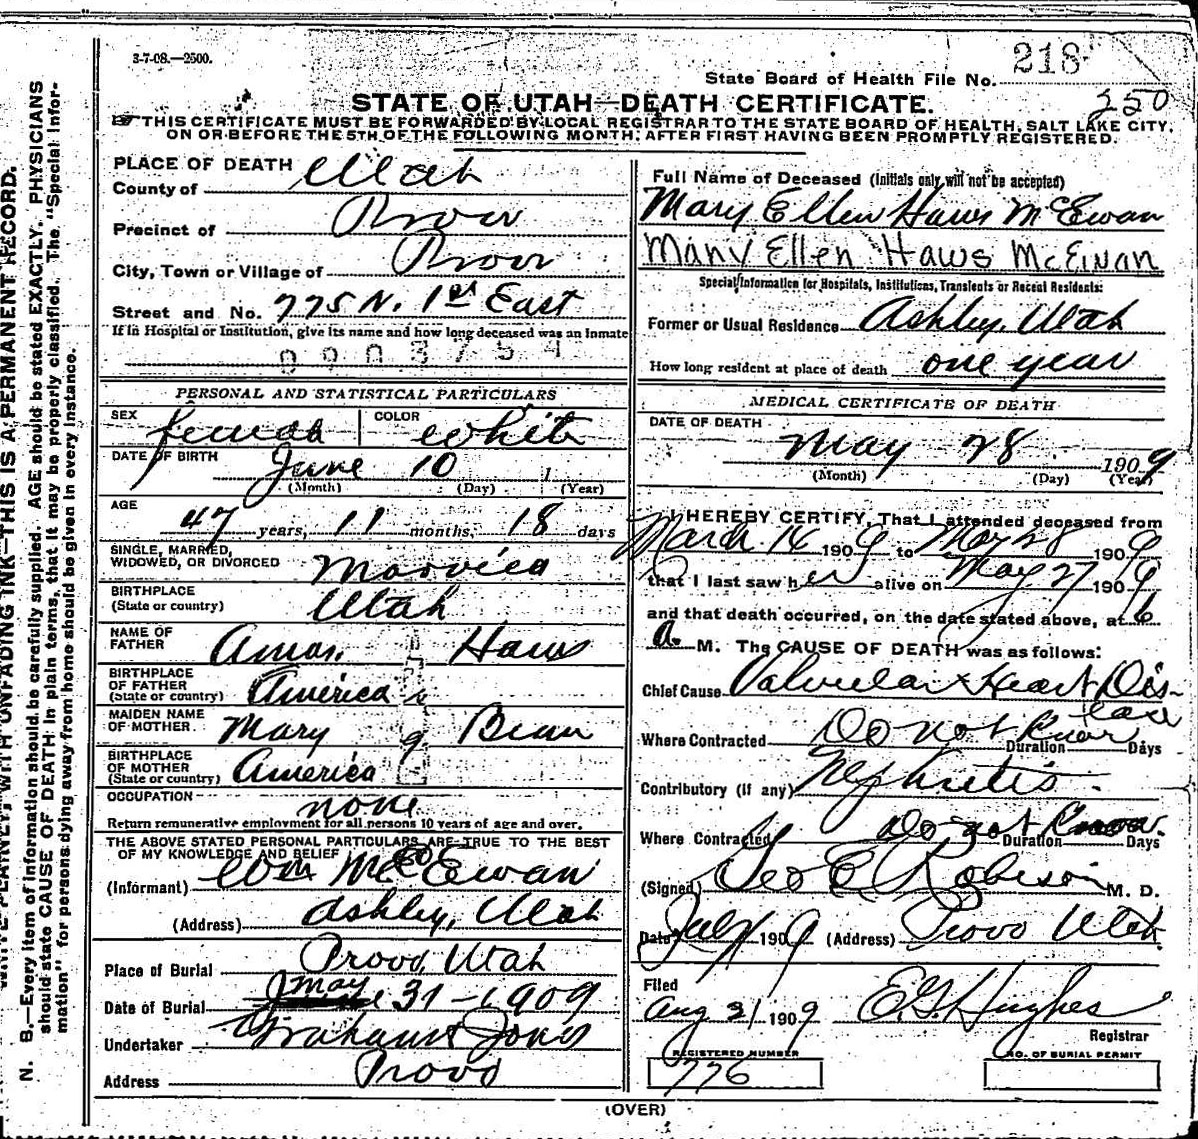 3-7-08.—2500.
218
State Board of Health File No.
250
STATE OF UTAH—DEATH CERTIFICATE.
THIS CERTIFICATE MUST BE FORWARDED BY LOCAL REGISTRAR TO THE STATE BOARD OF HEALTH, SALT LAKE CITY,
ON OR BEFORE THE 5TH OF THE FOLLOWING MONTH, AFTER FIRST HAVING BEEN PROMPTLY REGISTERED.
N. B.—Every item of information should be carefully supplied. AGE should be stated EXACTLY. PHYSICIANS
should state CAUSE OF DEATH in plain terms, that it may be properly classified. The "Special Infor-
mation" for persons dying away from home should be given in every instance.
WITH UNFADING INK—THIS IS A PERMANENT RECORD.
PLACE OF DEATH
County of Utah
Precinct of Provo
City, Town or Village of Provo
Street and No. 775 N. 1st East
If in Hospital or Institution, give its name and how long deceased was an inmate
0903754
PERSONAL AND STATISTICAL PARTICULARS
SEX female COLOR White
DATE OF BIRTH June 10 1
(Month) (Day) (Year)
AGE
47 years, 11 months, 18 days
SINGLE, MARRIED,
WIDOWED, OR DIVORCED Married
BIRTHPLACE
(State or country) Utah
NAME OF
FATHER Amos Haws
BIRTHPLACE
OF FATHER
(State or country) America
MAIDEN NAME
OF MOTHER Mary Bean
BIRTHPLACE
OF MOTHER
(State or country) America
OCCUPATION none
Return remunerative employment for all persons 10 years of age and over.
THE ABOVE STATED PERSONAL PARTICULARS ARE TRUE TO THE BEST
OF MY KNOWLEDGE AND BELIEF
(Informant) Wm McEwan
(Address) Ashley, Utah
Place of Burial Provo, Utah
Date of Burial May 31-1909
Undertaker Graham & Jones
Address Provo
Full Name of Deceased (Initials only will not be accepted)
Mary Ellen Haws McEwan
Mary Ellen Haws McEwan
Special Information for Hospitals, Institutions, Transients or Recent Residents:
Former or Usual Residence Ashley, Utah
How long resident at place of death one year
MEDICAL CERTIFICATE OF DEATH
DATE OF DEATH
May 28 1909
(Month) (Day) (Year)
I HEREBY CERTIFY, That I attended deceased from
March 14 1909 to May 28 1909
that I last saw her alive on May 27 1909
and that death occurred, on the date stated above, at 6
a. M. The CAUSE OF DEATH was as follows:
Chief Cause Valvular Heart Dis-
ease
Where Contracted Do not Know Duration Days
Contributory (if any) Nephritis
Where Contracted Do not Know. Duration Days
(Signed) Geo E. Robison M. D.
Date July 1 1909 (Address) Provo Utah
Filed
Aug 21 1909 E.G. Hughes
Registrar
REGISTERED NUMBER NO. OF BURIAL PERMIT
776
(OVER)